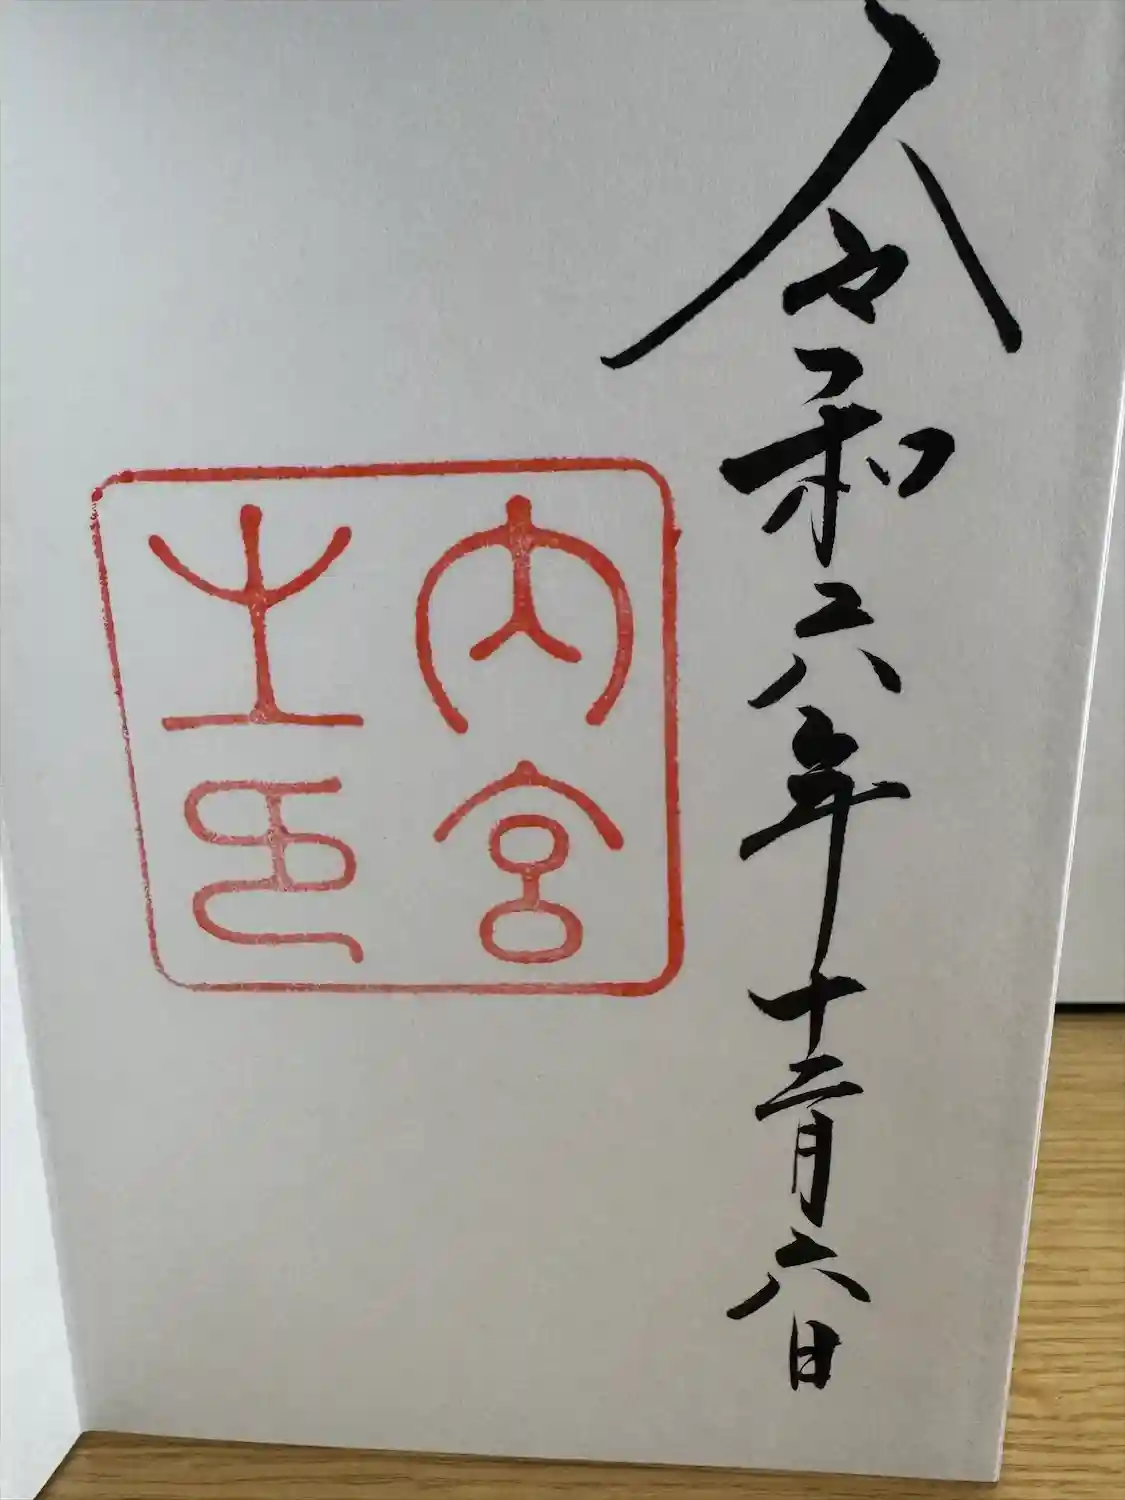 令和六年十二月六日
内宮之印